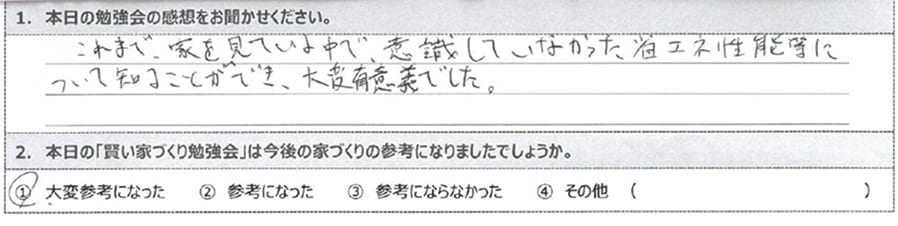 1. 本日の勉強会の感想をお聞かせください。
これまで、家を見ている中で、意識していなかった省エネ性能等に
ついて知ることができ、大変有意義でした。
2. 本日の「賢い家づくり勉強会」は今後の家づくりの参考になりましたでしょうか。
① 大変参考になった ② 参考になった ③ 参考にならなかった ④ その他 ( )